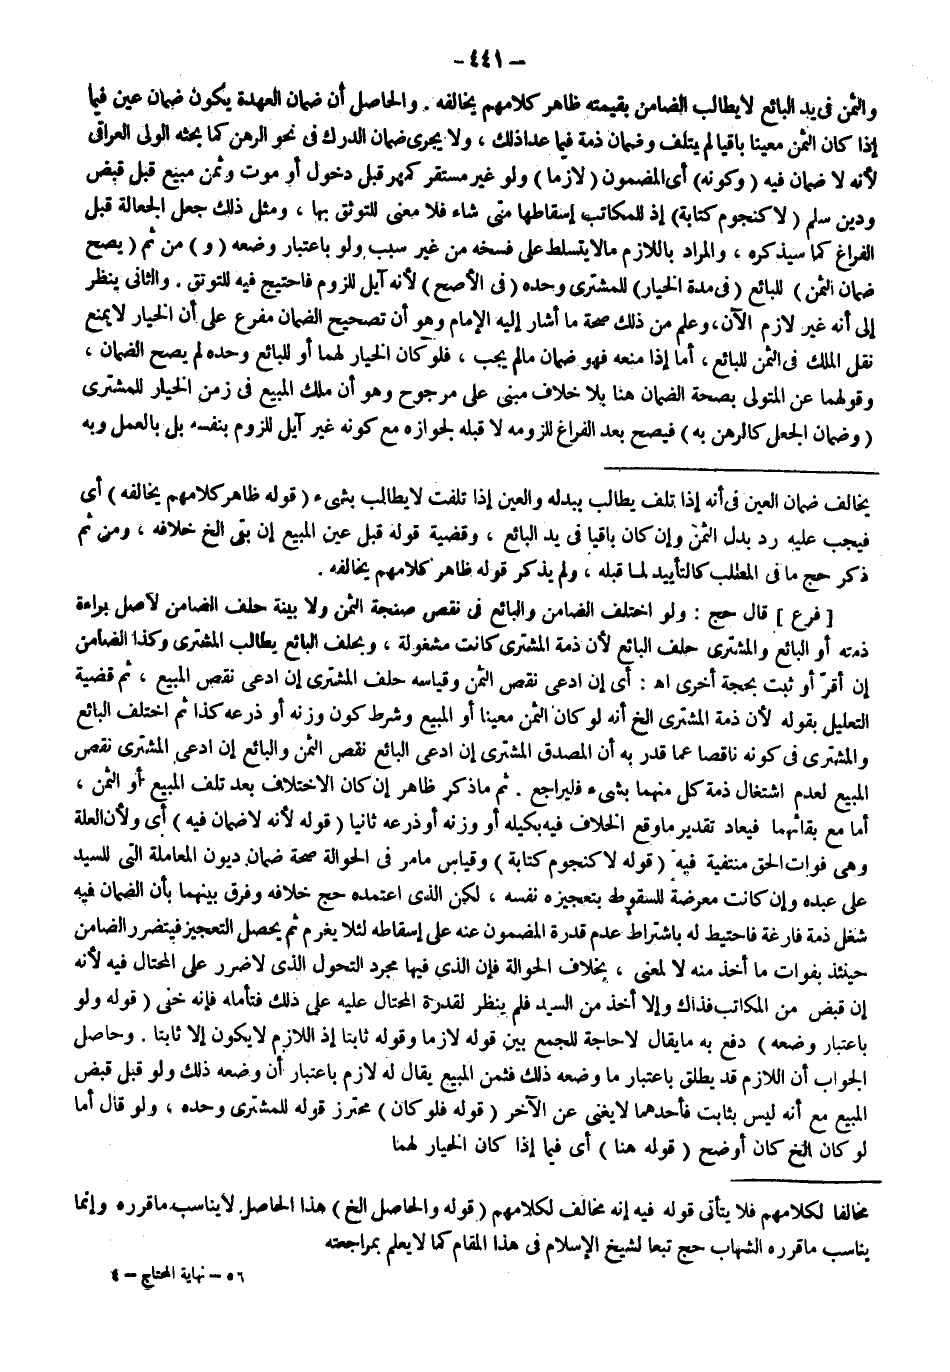 - ٤٤١ -
والثمن فى يد البائع لايطالب الضامن بقيمته ظاهر كلامهم يخالفه . والحاصل أن ضمان العهدة يكون ضمان عين فيما
إذا كان الثمن معينا باقيا لم يتلف وضمان ذمة فيما عداذلك ، ولا يجرى ضمان الدرك فى نحو الرهن كما بحثه الولى العراقى
لأنه لا ضمان فيه ( وكونه ) أى المضمون ( لازما ) ولو غير مستقر كمهر قبل دخول أو موت وثمن مبيع قبل قبض
ودين سلم ( لا كنجوم كتابة ) إذ للمكاتب إسقاطها متى شاء فلا معنى للتوثق بها ، ومثل ذلك جعل الجعالة قبل
الفراغ كما سيذكره ، والمراد باللازم مالايتسلط على فسخه من غير سبب ولو باعتبار وضعه ( و ) من ثم ( يصح
ضمان الثمن ) للبائع ( فى مدة الخيار ) للمشترى وحده ( فى الأصح ) لأنه آيل للزوم فاحتيج فيه للتوثق . والثانى ينظر
إلى أنه غير لازم الآن ، وعلم من ذلك صحة ما أشار إليه الإمام وهو أن تصحيح الضمان مفرع على أن الخيار لايمنع
نقل الملك فى الثمن للبائع ، أما إذا منعه فهو ضمان مالم يجب ، فلو كان الخيار لهما أو للبائع وحده لم يصح الضمان ،
وقولهما عن المتولى بصحة الضمان هنا بلا خلاف مبنى على مرجوح وهو أن ملك المبيع فى زمن الخيار للمشترى
( وضمان الجعل كالرهن به ) فيصح بعد الفراغ للزومه لا قبله لجوازه مع كونه غير آيل للزوم بنفسه بل بالعمل وبه
يخالف ضمان العين فى أنه إذا تلف يطالب ببدله والعين إذا تلفت لايطالب بشىء ( قوله ظاهر كلامهم يخالفه ) أى
فيجب عليه رد بدل الثمن وإن كان باقيا فى يد البائع ، وقضية قوله قبل عين المبيع إن بقى الخ خلافه ، ومن ثم
ذكر حج ما فى المطلب كالتأييد لما قبله ، ولم يذكر قوله ظاهر كلامهم يخالفه .
[ فرع ] قال حج : ولو اختلف الضامن والبائع فى نقص صنجة الثمن ولا بينة حلف الضامن لأصل براءة
ذمته أو البائع والمشترى حلف البائع لأن ذمة المشترى كانت مشغولة ، وبحلف البائع يطالب المشترى وكذا الضامن
إن أقرّ أو ثبت بحجة أخرى اه : أى إن ادعى نقص الثمن وقياسه حلف المشترى إن ادعى نقص المبيع ، ثم قضية
التعليل بقوله لأن ذمة المشترى الخ أنه لو كان الثمن معينا أو المبيع وشرط كون وزنه أو ذرعه كذا ثم اختلف البائع
والمشترى فى كونه ناقصا عما قدر به أن المصدق المشترى إن ادعى البائع نقص الثمن والبائع إن ادعى المشترى نقص
المبيع لعدم اشتغال ذمة كل منهما بشىء فليراجع . ثم ماذكر ظاهر إن كان الاختلاف بعد تلف المبيع أو الثمن ،
أما مع بقائهما فيعاد تقدير ماوقع الخلاف فيه بكيله أو وزنه أو ذرعه ثانيا ( قوله لأنه لاضمان فيه ) أى ولأن العلة
وهى فوات الحق منتفية فيه ( قوله لا كنجوم كتابة ) وقياس مامر فى الحوالة صحة ضمان ديون المعاملة التى للسيد
على عبده وإن كانت معرضة للسقوط بتعجيزه نفسه ، لكن الذى اعتمده حج خلافه وفرق بينهما بأن الضمان فيه
شغل ذمة فارغة فاحتيط له باشتراط عدم قدرة المضمون عنه على إسقاطه لئلا يغرم ثم يحصل التعجيز فيتضرر الضامن
حينئذ بفوات ما أخذ منه لا لمعنى ، بخلاف الحوالة فإن الذى فيها مجرد التحول الذى لاضرر على المحتال فيه لأنه
إن قبض من المكاتب فذاك وإلا أخذ من السيد فلم ينظر لقدرة المحتال عليه على ذلك فتأمله فإنه خفى ( قوله ولو
باعتبار وضعه ) دفع به مايقال لاحاجة للجمع بين قوله لازما وقوله ثابتا إذ اللازم لايكون إلا ثابتا . وحاصل
الجواب أن اللازم قد يطلق باعتبار ما وضعه ذلك فثمن المبيع يقال له لازم باعتبار أن وضعه ذلك ولو قبل قبض
المبيع مع أنه ليس بثابت فأحدهما لايغنى عن الآخر ( قوله فلو كان ) محترز قوله للمشترى وحده ، ولو قال أما
لو كان الخ كان أوضح ( قوله هنا ) أى فيما إذا كان الخيار لهما
مخالفا لكلامهم فلا يتأتى قوله فيه إنه مخالف لكلامهم ( قوله والحاصل الخ ) هذا الحاصل لايناسب ماقرره وإنما
يناسب ماقرره الشهاب حج تبعا لشيخ الإسلام فى هذا المقام كما لايعلم بمراجعته
٥٦ - نهاية المحتاج - ٤